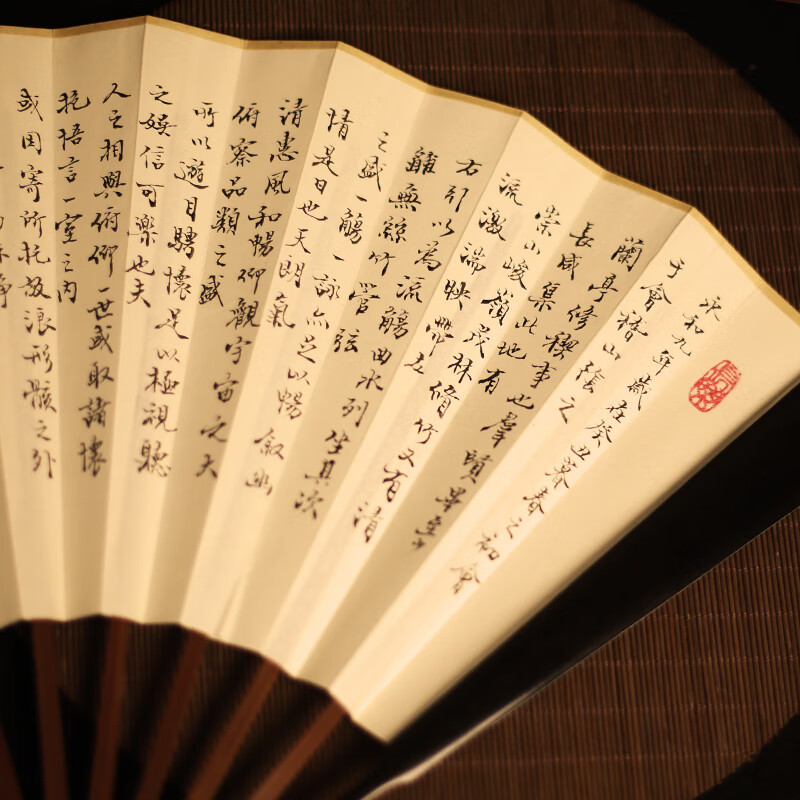 永和九年歲在癸丑暮春之初會
于會稽山陰之
蘭亭修禊事也羣賢畢至少
長咸集此地有
崇山峻嶺茂林脩竹又有清
流激湍映帶左
右引以為流觴曲水列坐其次
雖無絲竹管弦
之盛一觴一詠亦足以暢敘幽
情是日也天朗氣
清惠風和暢仰觀宇宙之大
俯察品類之盛
所以遊目騁懷足以極視聽
之娛信可樂也夫
人之相與俯仰一世或取諸懷
抱悟言一室之內
或因寄所托放浪形骸之外